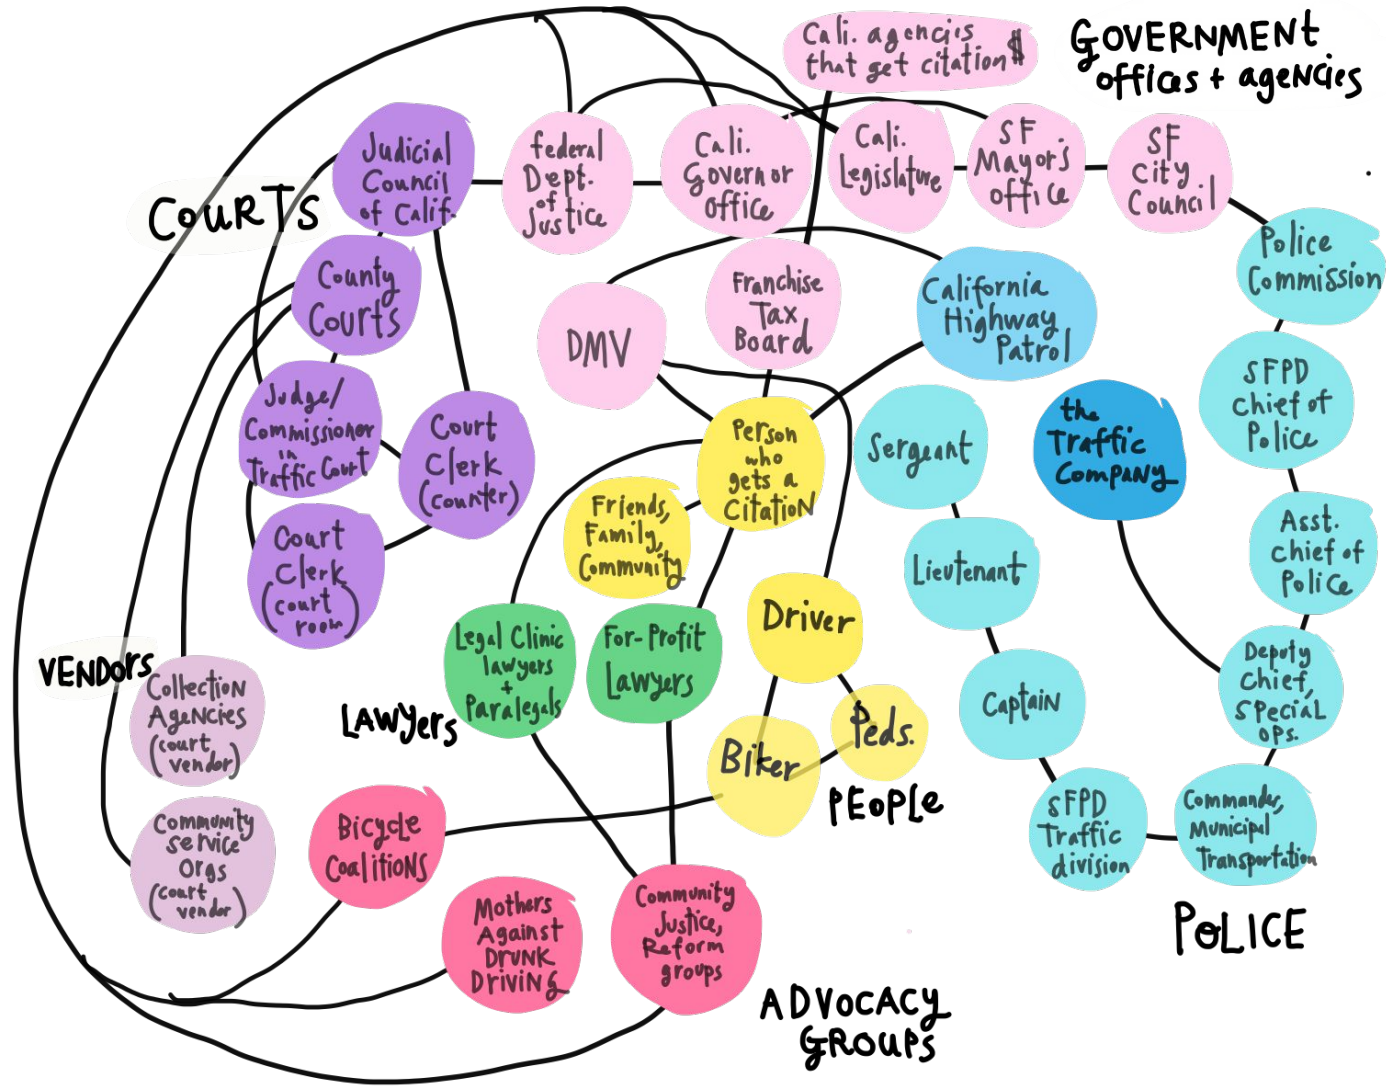 Cali. agencies
that get citation $
GOVERNMENT
offices + agencies
COURTS
Judicial
Council
of Calif.
federal
Dept.
of
Justice
Cali.
Governor
Office
Cali.
Legislature
SF
Mayor's
office
SF
City
Council
Police
Commission
County
Courts
DMV
Franchise
Tax
Board
California
Highway
Patrol
SFPD
Chief of
Police
Judge/
Commissioner
in
Traffic Court
Court
Clerk
(counter)
Person
who
gets a
Citation
Sergeant
the
Traffic
Company
Friends,
Family,
Community
Asst.
chief of
Police
Court
Clerk
(court
room)
Lieutenant
Legal Clinic
lawyers
+
Paralegals
For-Profit
Lawyers
Driver
Deputy
Chief,
Special
ops.
VENDORS
Collection
Agencies
(court
vendor)
LAWYERS
Captain
Biker
Peds.
PEOPLE
Community
Service
Orgs
(court
vendor)
Bicycle
Coalitions
SFPD
Traffic
division
Commander,
Municipal
Transportation
Mothers
Against
Drunk
Driving
Community
Justice,
Reform
groups
POLICE
ADVOCACY
GROUPS